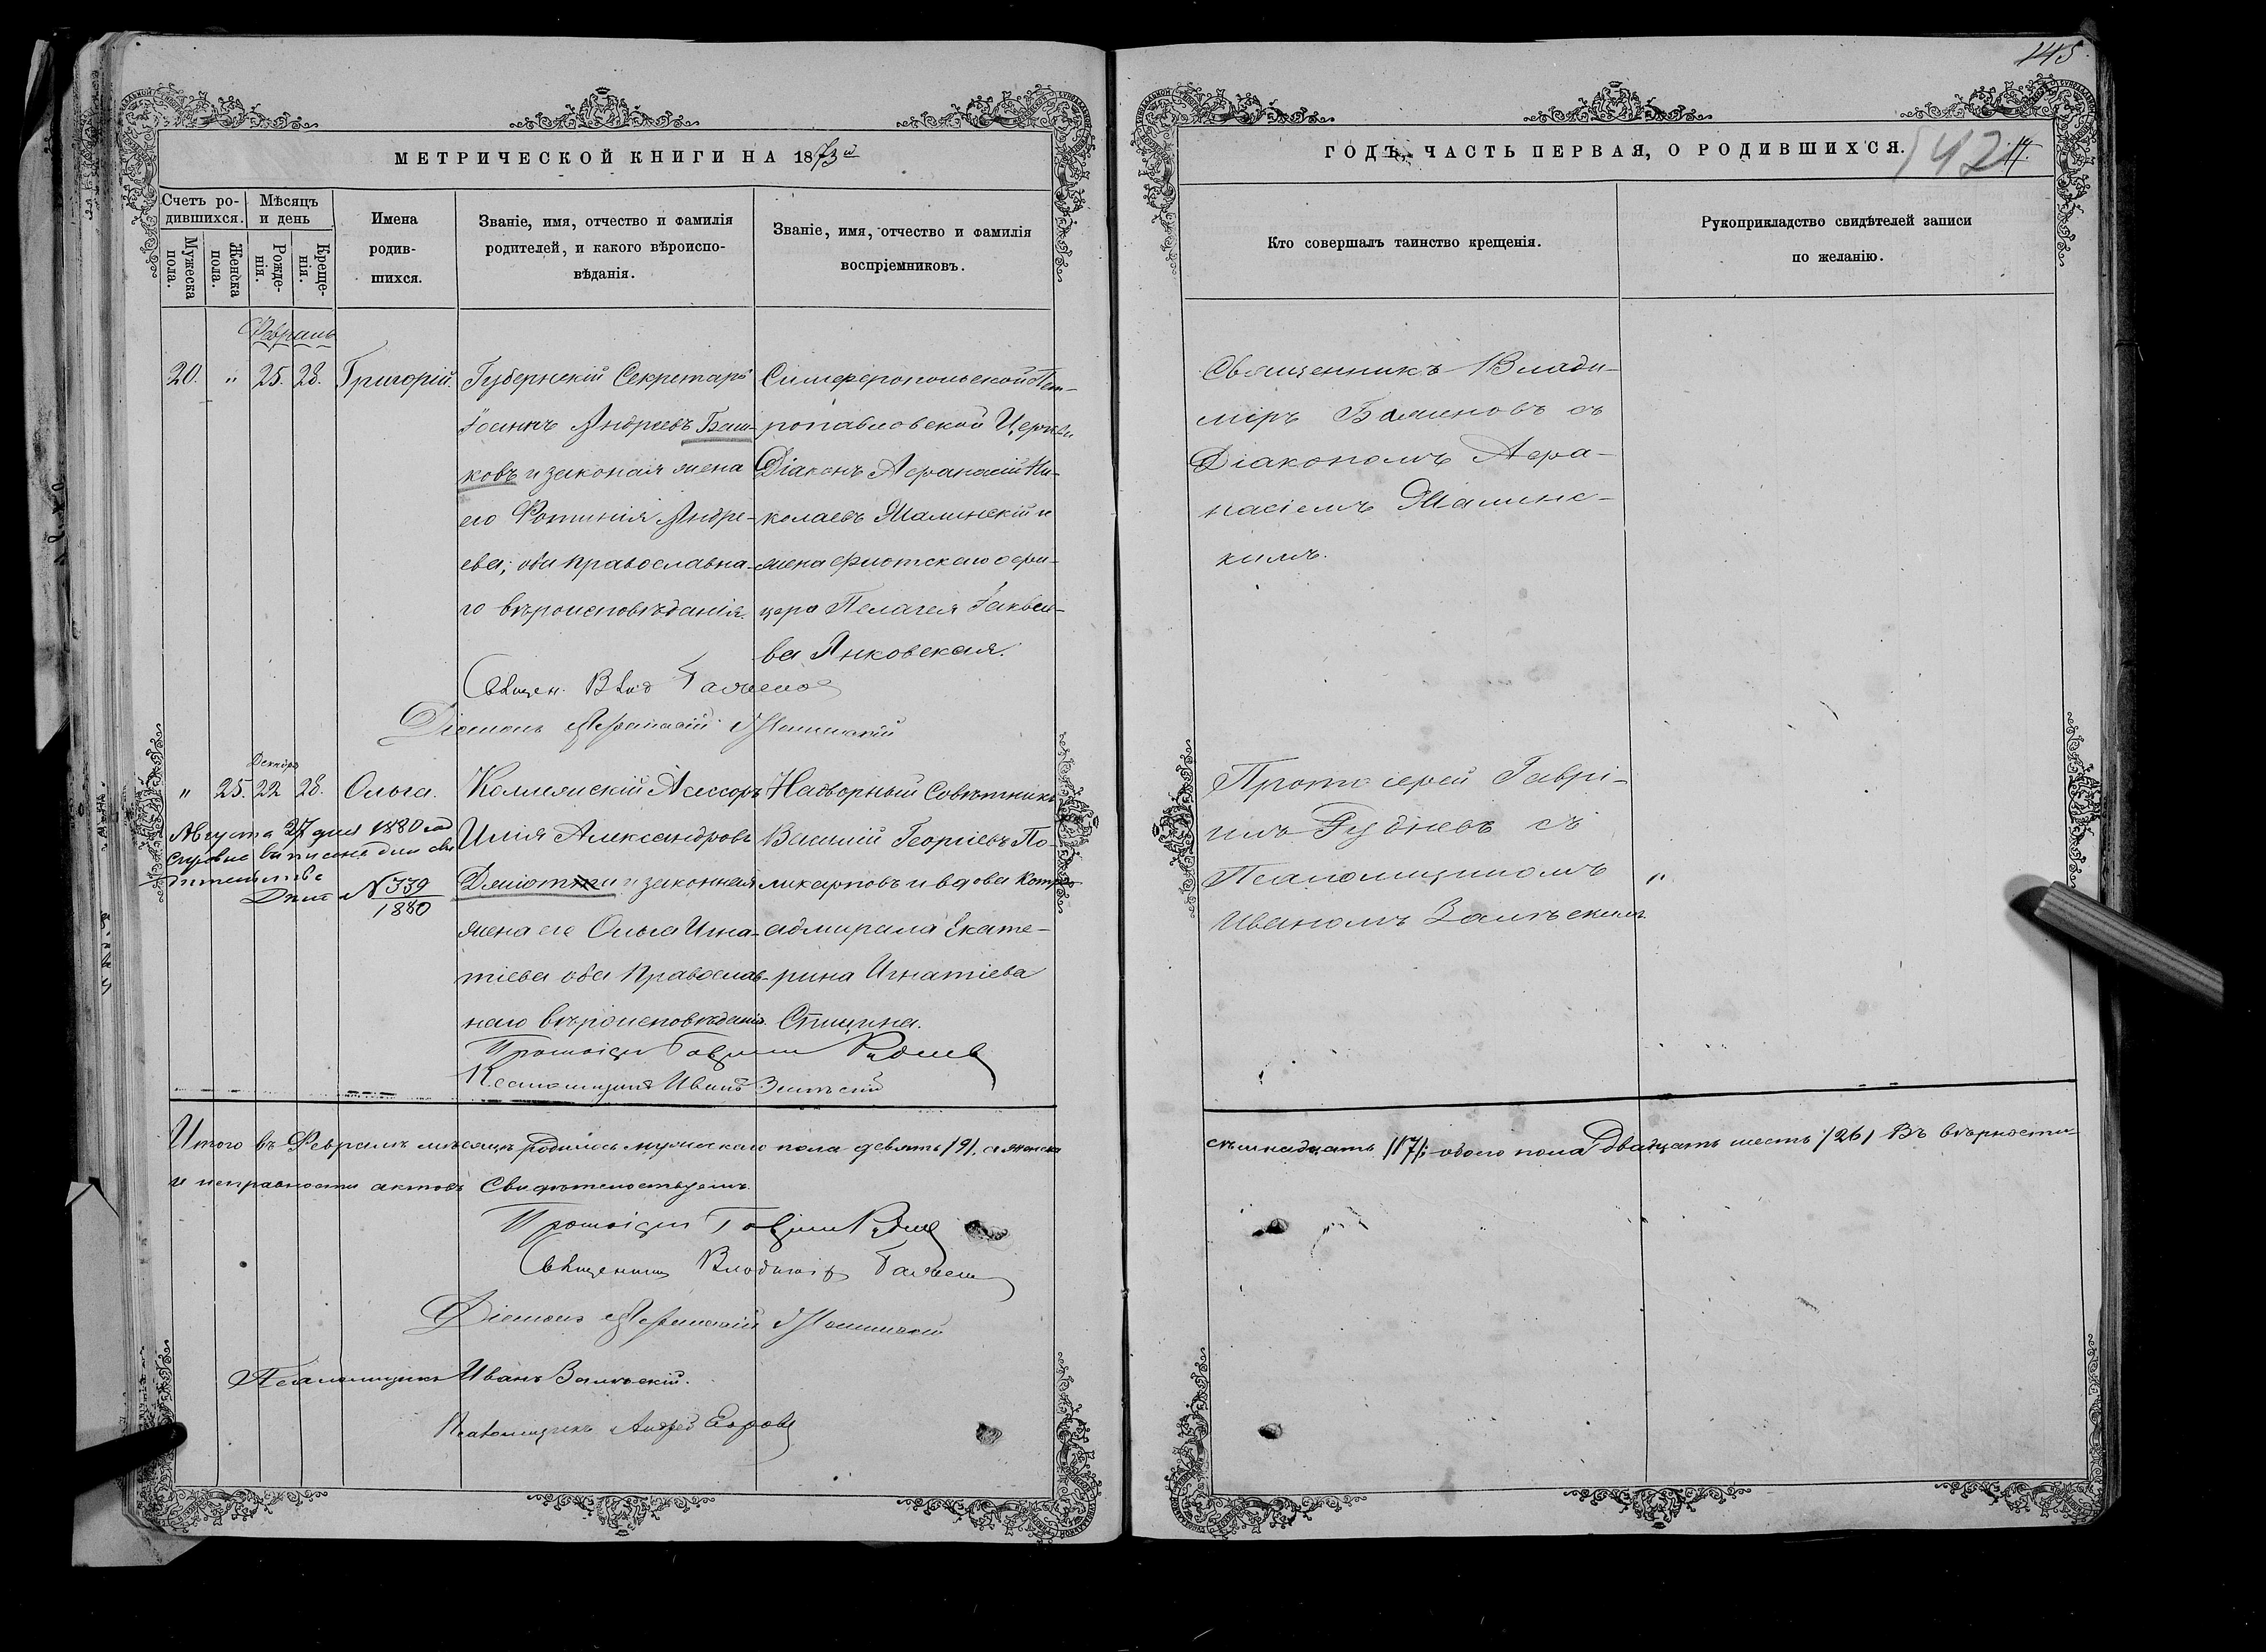 145
МЕТРИЧЕСКОЙ КНИГИ НА 1873й
ГОДЪ, ЧАСТЬ ПЕРВАЯ, О РОДИВШИХСЯ.
142
Счетъ ро-
дившихся.
Мужеска
пола.
Женска
пола.
Мѣсяцъ
и день
Рожде-
нія.
Креще-
нія.
Имена
родив-
шихся.
Званіе, имя, отчество и фамилія
родителей, и какого вѣроиспо-
вѣданія.
Званіе, имя, отчество и фамилія
воспріемниковъ.
Кто совершалъ таинство крещенія.
Рукоприкладство свидѣтелей записи
по желанію.
Февраль
20. " 25. 28. Григорій.
Губернскій Секретарь
Іоаннъ Андреевъ Баш-
ковъ и законная жена
его Фотинія Андре-
ева; оба православна-
го вѣроисповѣданія.
Симферопольской Пет-
ропавловской Церкви
Діаконъ Афанасій Ни-
колаевъ Шалинскій и
жена флотскаго офи-
цера Пелагея Іаковле-
ва Янковская.
Священникъ Влади-
міръ Баженовъ съ
Діакономъ Афа-
насіемъ Шалинс-
кимъ.
Священ. Влад Баженов
Діаконъ Афанасій Шалинскій
Декабрь
" 25. 22 28. Ольга.
Августа 27 дня 1880 год
№ 339
1880
Коллежскій Ассесоръ
Илія Александровъ
и законная
жена его Ольга Игна-
тіева оба Православ-
наго вѣроисповѣданія.
Надворный Совѣтникъ
Василій Георгіевъ По-
ликарповъ и вдова Контръ
адмирала Екате-
рина Игнатіева
Спицина.
Протоіерей Гаврі-
илъ Рудневъ съ
Псаломщикомъ "
Иваномъ Замѣскимъ
Протоіерей Гавріилъ Руднев
Псаломщикъ Иванъ Замѣскій
Итого въ Февралѣ мѣсяцѣ родилось мужескаго пола девять /9/, а женска
семнадцать /17/; обоего пола Двадцать шесть /26/ Въ вѣрности
и исправности актовъ Свидѣтельствуемъ.
Протоіерей Гавріилъ Руднев
Священникъ Владиміръ Баженов
Діаконъ Афанасій Шалинскій
Псаломщикъ Иванъ Замѣскій.
Псаломщикъ Андрей